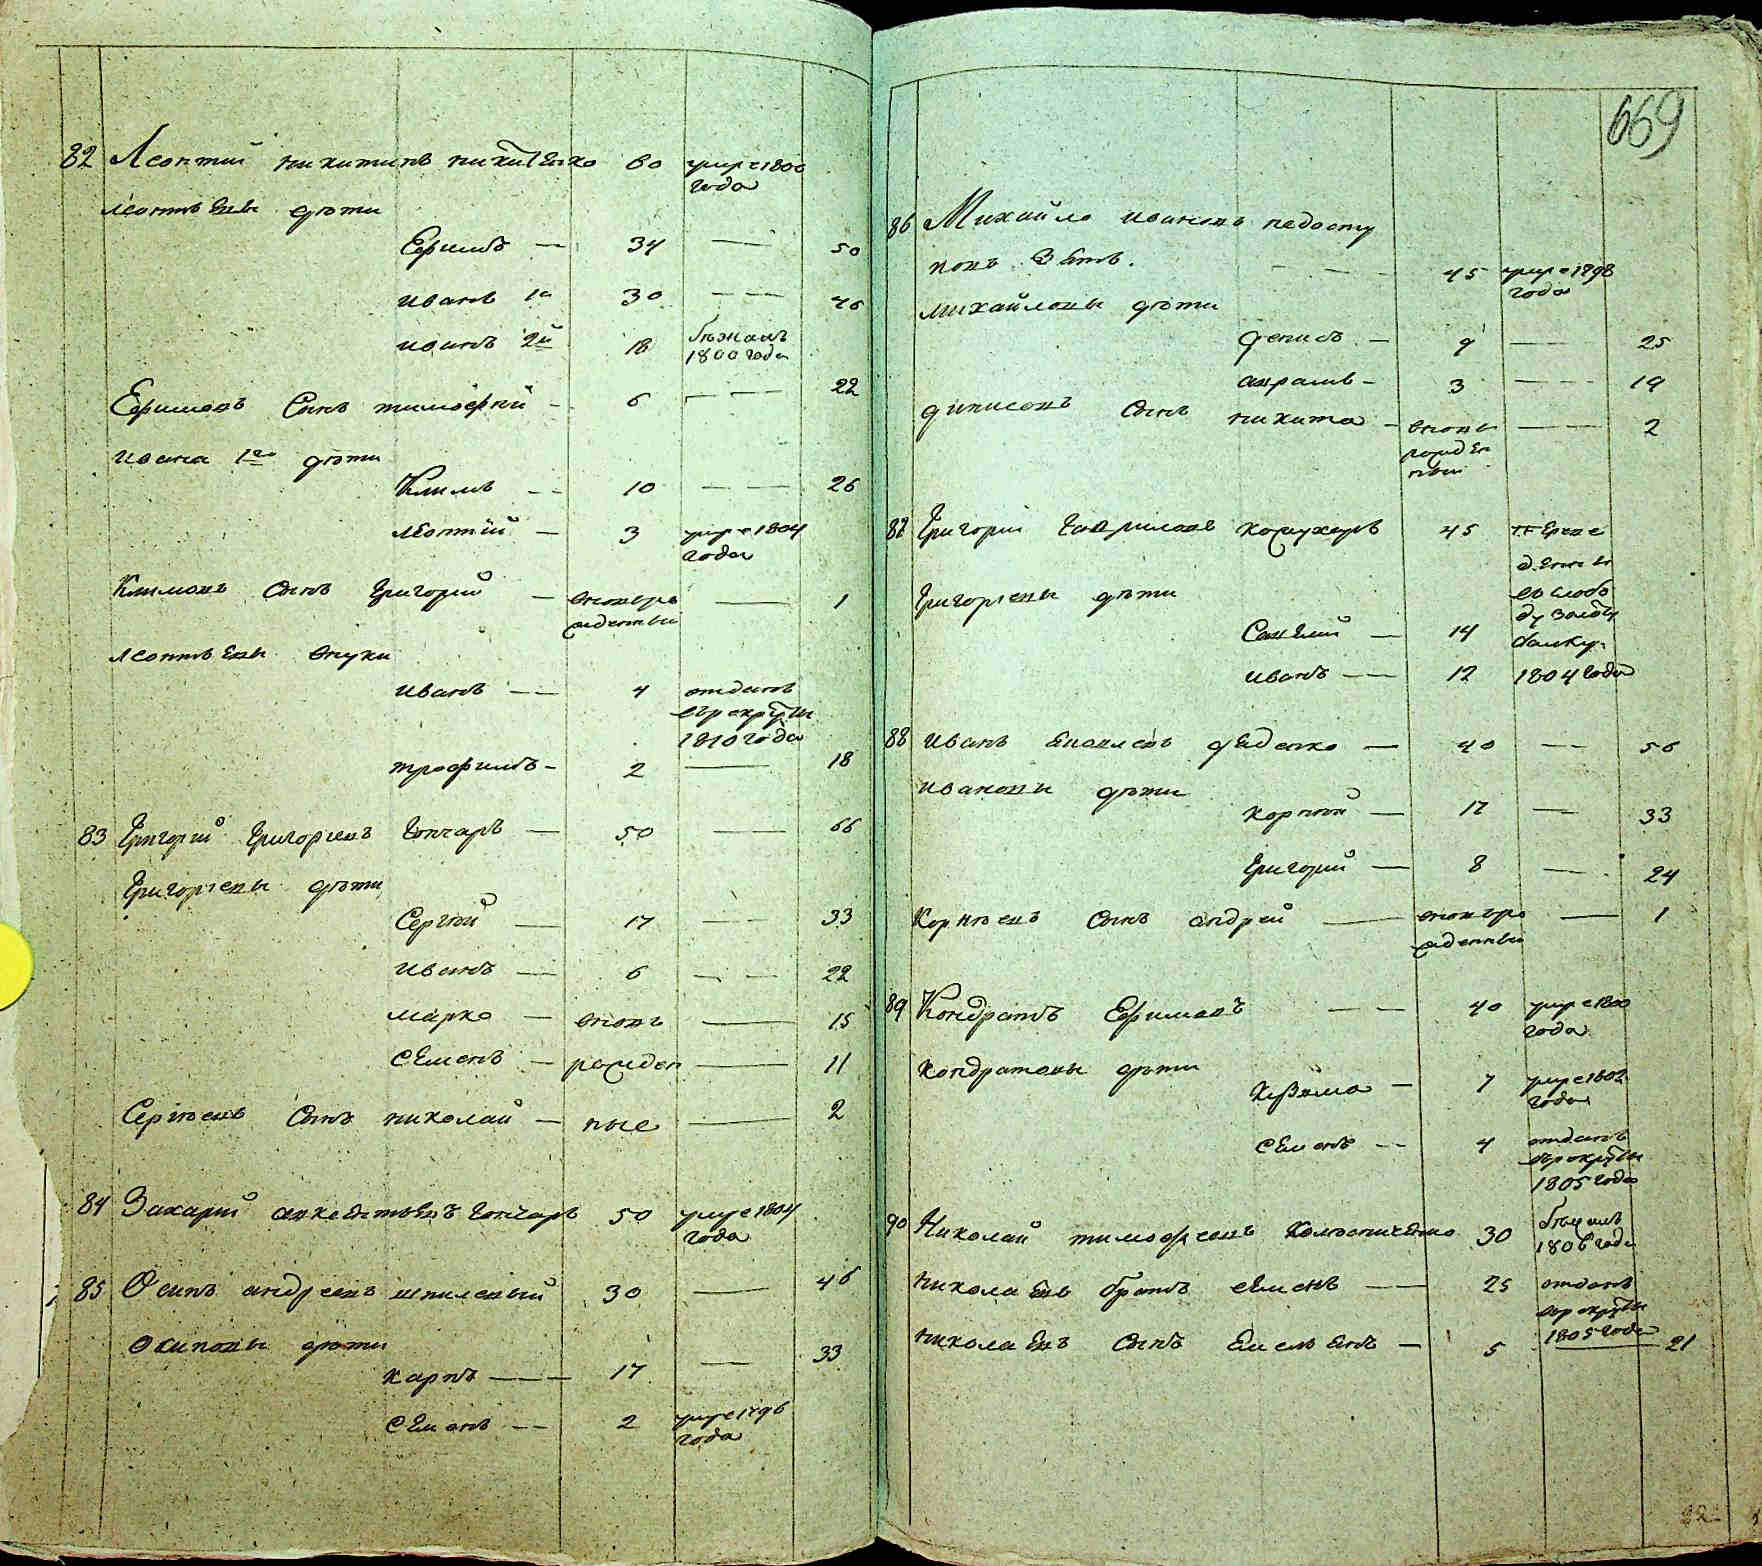 82 Леонтий никитинъ никитенко 60 умре 1800
года
леонтьевы дѣти
Ефимъ — 34 — 50
иванъ 1й 30 — — 46
иванъ 2й 18 бѣжалъ
1800 года
Ефимовъ Сынъ тимофѣй — 6 — — 22
ивана 1го дѣти
Климъ — 10 — — 26
леонтий — 3 умре 1804
года
Климовъ Сынъ Григорий — вновьро
жденный — 1
леонтьевы внуки
иванъ — 4 отданъ
въ рекруты
1810 года
трофимъ — 2 — 18
83 Григорий Григорьевъ Гончаръ — 50 — 66
Григорьевы дѣти
Сергѣй — 17 — 33
иванъ — 6 — — 22
марко — вновь — 15
семенъ — рожден — 11
Сергѣевъ Сынъ николай — ные — 2
84 Захарий авксентьевъ Гончаръ 50 умре 1804
года
85 Осипъ андреевъ шпилевый 30 — 46
осиповы дѣти
карпъ — 17 — 33
семенъ — 2 умре 1796
года
669
86 Михайло ивановъ недосту
повъ Зять. — — 45 умре 1798
года
михайловы дѣти
денисъ — 9 — 25
аврамъ — 3 — — 19
динисовъ Сынъ никита — вновь
рожден
ный — — 2
87 Григорий Гавриловъ кожухаръ 45 переве
дены
въ слобо
ду Золоту
балку
1804 года
Григорьевы дѣти
Савелий — 14
иванъ — 12
88 иванъ яковлевъ деденко — 40 — 56
ивановы дѣти
корнѣй — 17 — 33
Григорий — 8 — 24
Корнѣевъ Сынъ андрей — вновьро
жденный — 1
89 Кондратъ Ефимовъ — — 40 умре 1800
года
кондратовы дѣти
кузма — 7 умре 1802
года
семенъ — 4 отданъ
въ рекруты
1805 года
90 Николай тимофеевъ 30 бѣжалъ
1806 года
николаевъ братъ семенъ — 25 отданъ
въ рекруты
1805 года
николаевъ Сынъ Емельянъ — 5 — 21